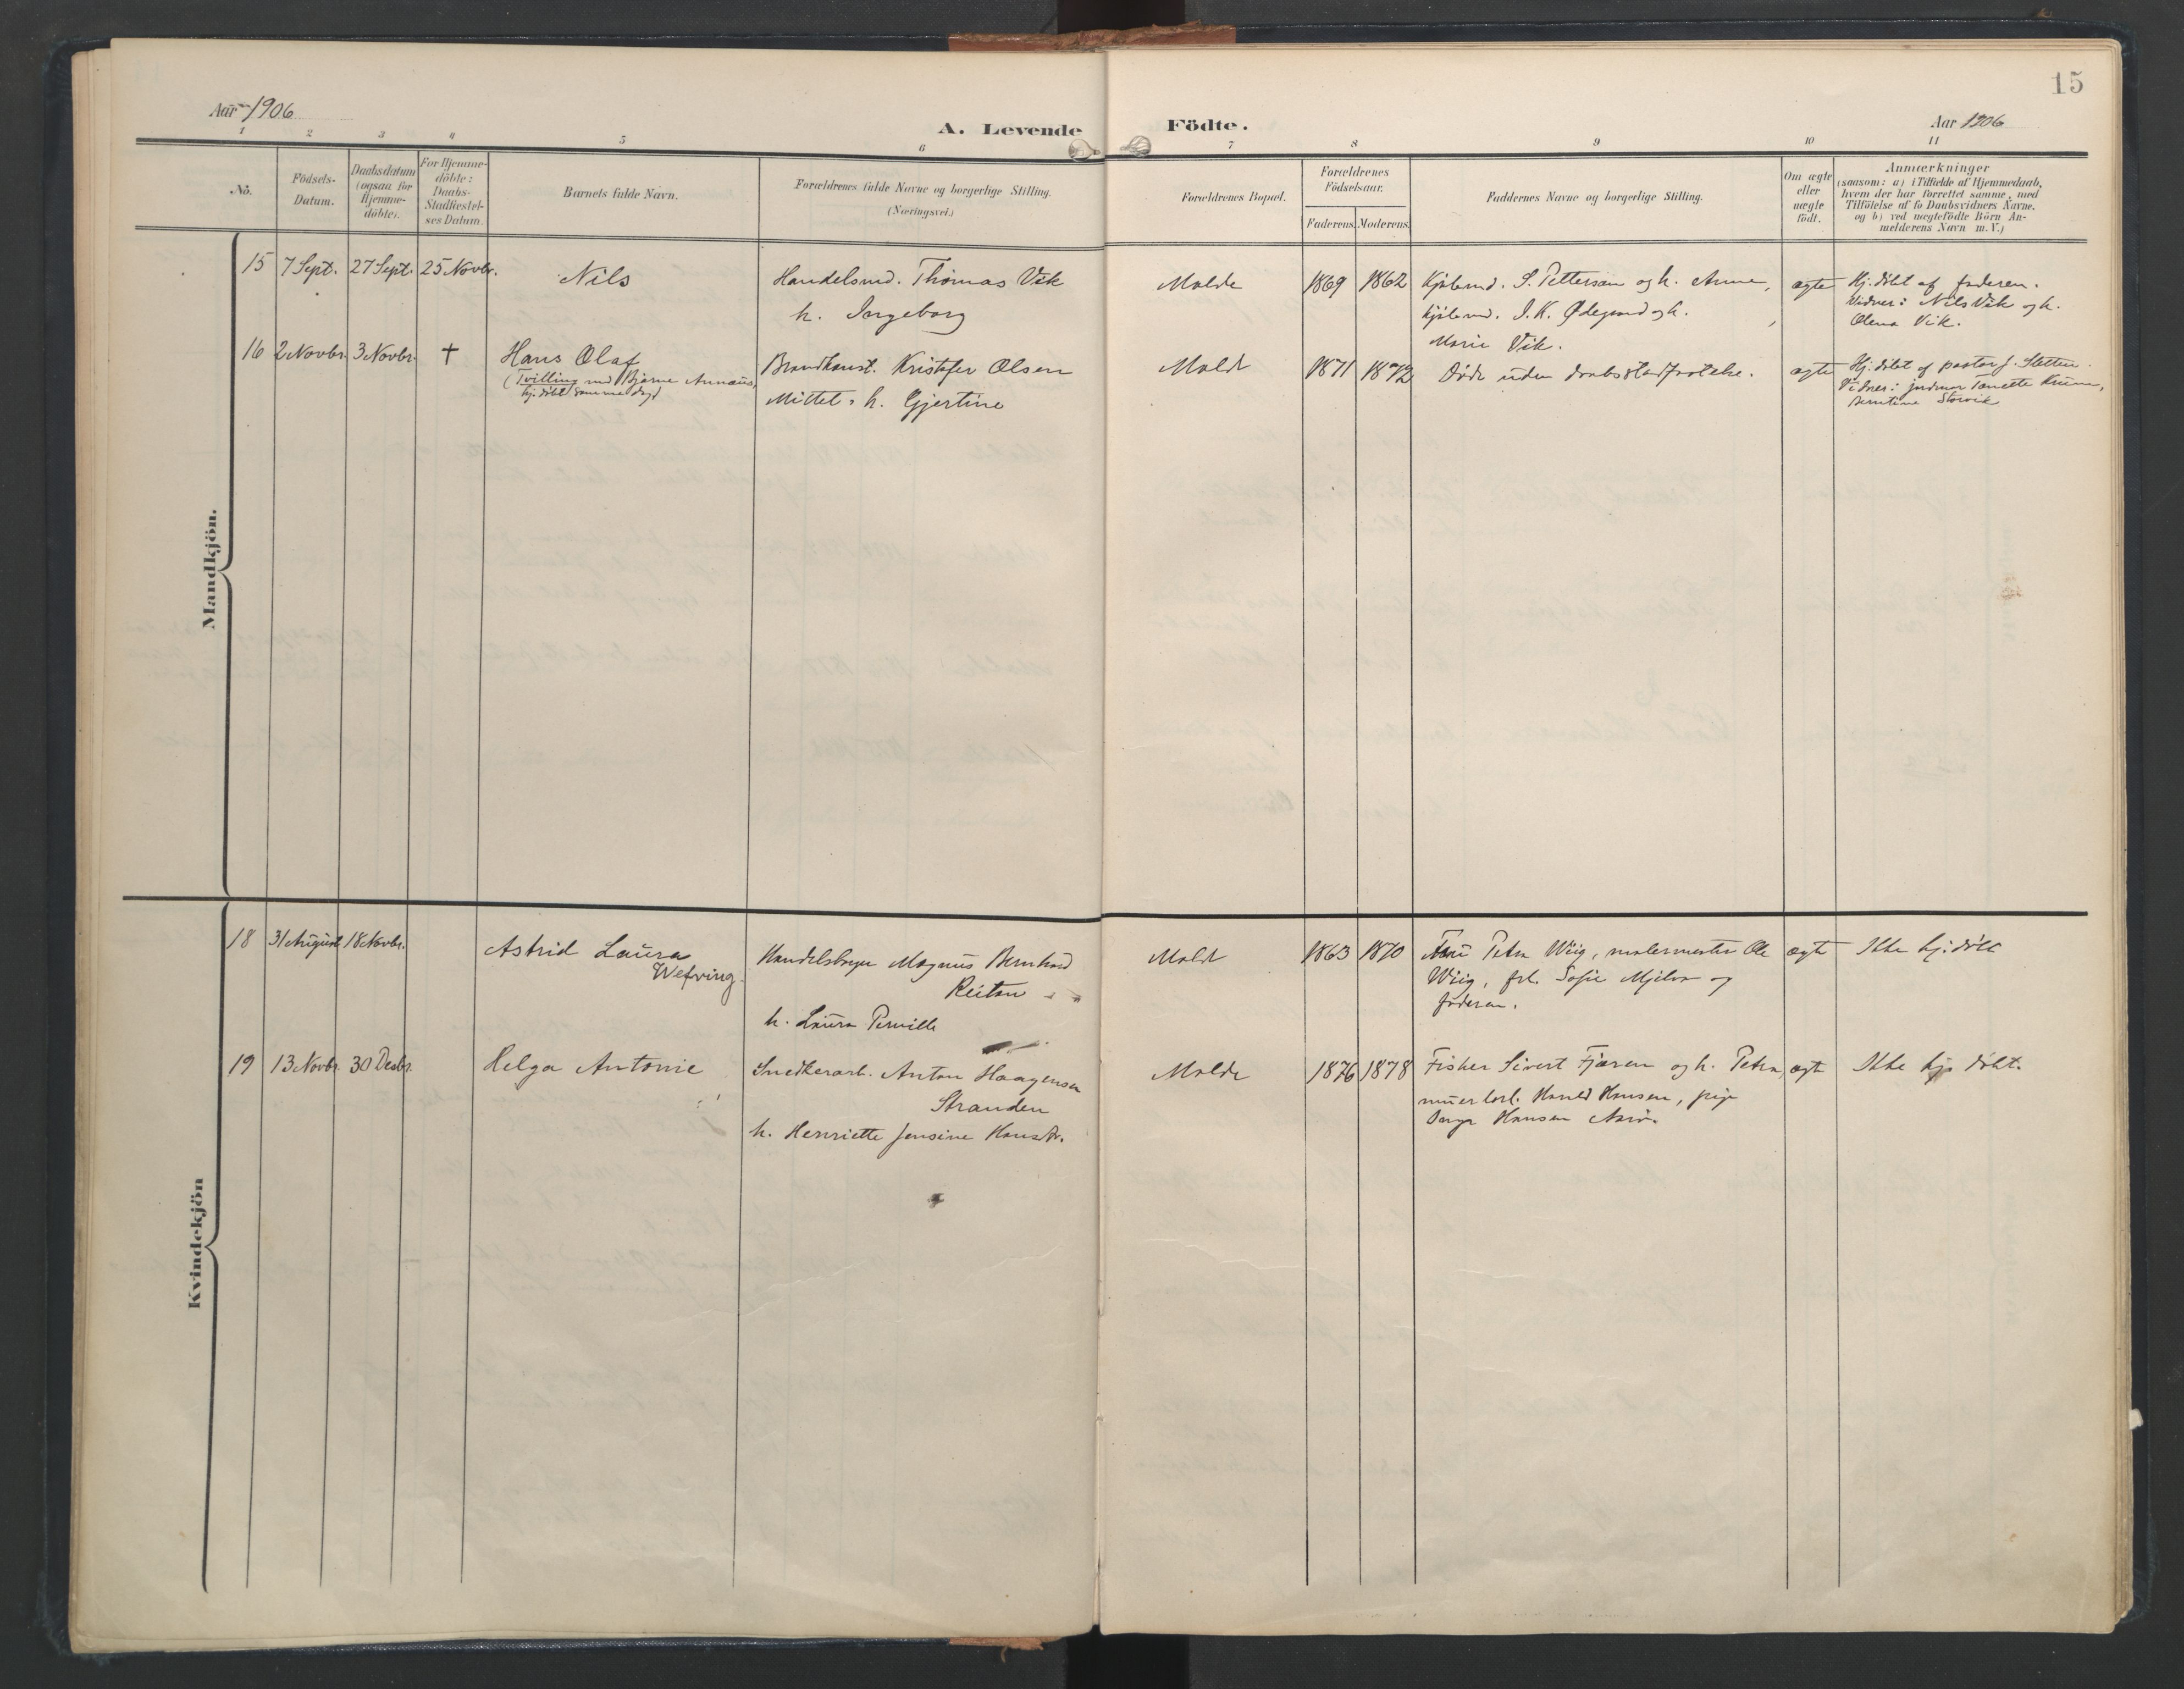 15
Aar 1906
A. Levende Födte.
Aar 1906
1 2 3 4 5 6 7 8 9 10 11
No.
Födsels-
Datum.
Daabsdatum
(ogsaa for
Hjemme-
döbte).
For Hjemme-
döbte:
Daabs-
Stadfæstel-
ses Datum.
Barnets fulde Navn.
Forældrenes fulde Navne og borgerlige Stilling.
(Næringsvei.)
Forældrenes Bopæl.
Forældrenes
Födselsaar.
Faderens. Moderens.
Faddernes Navne og borgerlige Stilling.
Om ægte
eller
uægte
födt.
Anmærkninger
(saasom: a) i Tilfælde af Hjemmedaab,
hvem der har forrettet samme, med
Tilföielse af to Daabsvidners Navne.
og b) ved uægtefödte Börn An-
melderens Navn m. V.)
Mandkjön.
15 7 Sept. 27 Sept. 25 Novbr. Nils
Handelsmd. Thomas Vik
h. Ingeborg
Molde 1869 1862
Kjöbmd. S. Pettersen og h. Anna,
Kjöbmd. J. K. Ødegaard og h.
Marie Vik.
ægte
Hj. döbt af faderen.
Vidner: Nils Vik og h.
Olena Vik.
16 2 Novbr. 3 Novbr. †
Hans Olaf
(Tvilling med Bjarne Annæus,
hj. döbt samme dag)
Brandkonst. Kristofer Olsen
Mittet & h. Gjertine
Molde 1871 1872
Døde uden daabsstadfæstelse.
ægte
Hj. döbt af pastor J. Sletten.
Vidner: jordmor
Berntine Storvik
Kvindekjön
18 31 August 18 Novbr.
Astrid Laura
Wefring.
Magnus Bernhard
h. Laura Pernille
Molde 1863 1870
Fru Petra Wiig, malermester Ole
Wiig, frk. Sofie Mjelva og
faderen.
ægte
Ikke hj. döbt
19 13 Novbr. 30 Decbr.
Helga Antonie
Snedkerarb. Anton Haagensen
Stranden
h. Henriette Jensine Hansdr.
Molde 1876 1878
Fisker Sivert Fjæren og h. Petra,
Hansen, pige
Hansen
ægte
Ikke hj. döbt.